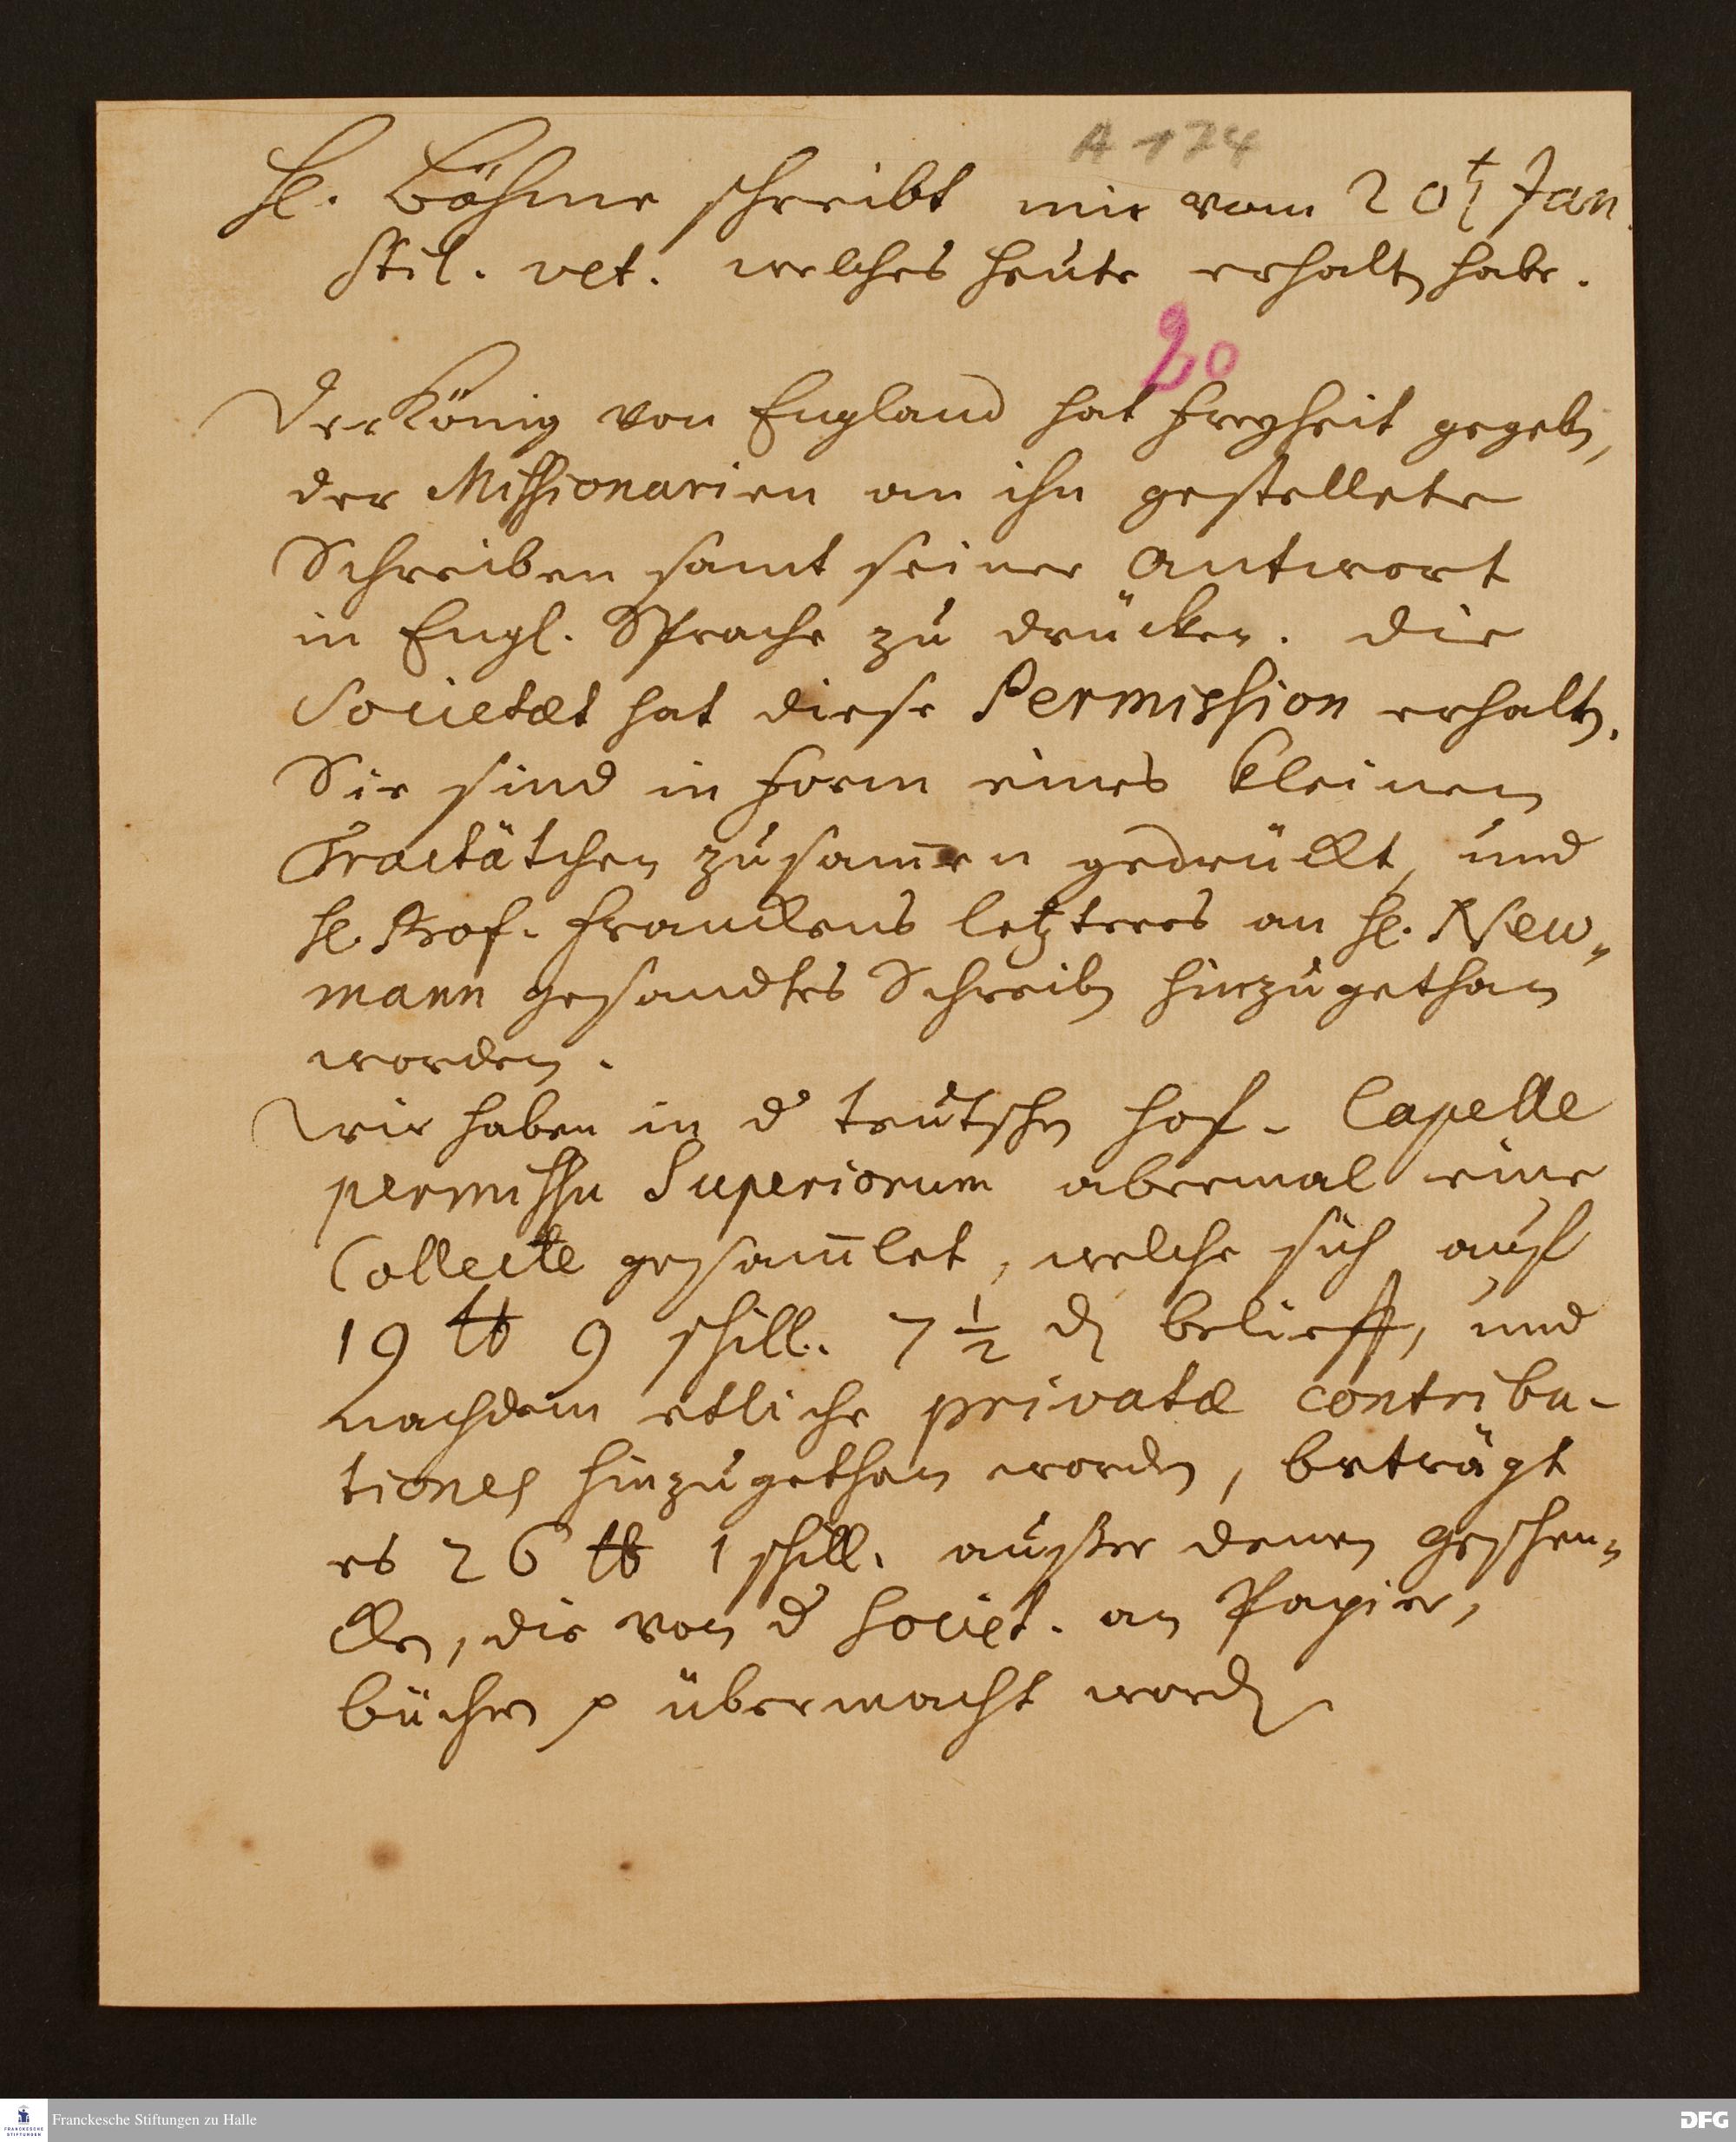 A 174
H. Böhme schreibt mir vom 20t Jan.
Stil. vet. welches heute erhalten habe.
20
Der König von England hat Freyheit gegeben,
der Missionarien an ihn gestellete
Schreiben samt seiner Antwort
in Engl. Sprache zu drücken. Die
Societæt hat diese Permission erhalten.
Sie sind in Form eines kleinen
Tractätchen zusam̄en gedrückt, und
H. Prof. Franckens letzteres an H. New-
mann gesandtes Schreiben hinzugethan
worden.
Wir haben in d teutschen Hof-Capelle
permissu Superiorum abermal eine
Collecte gesam̄let, welche sich auf
19 ℔ 9 schill. 7 1/2 d belieff, und
nachdem etliche privatæ contribu-
tiones hinzugethan worden, beträgt
es 26 ℔ 1 schill. außer denen Geschen-
cken, die von d Societ. an Papier,
Bücher p übermacht worden.
Franckesche Stiftungen zu Halle
FRANCKESCHE STIFTUNGEN
DFG